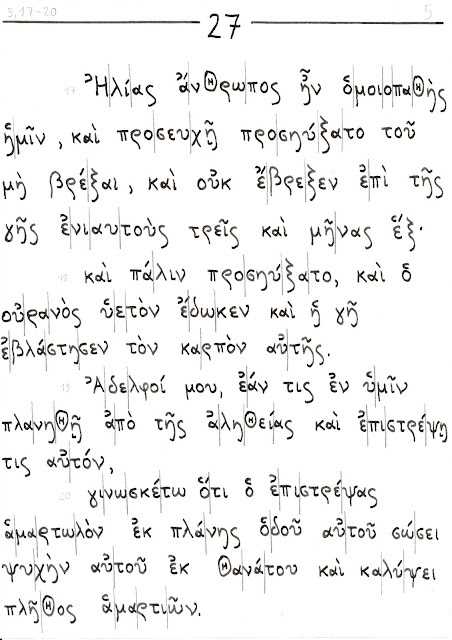 5,17-20 27 5
17 Ἠλίας ἄνθρωπος ἦν ὁμοιοπαθὴς
ἡμῖν, καὶ προσευχῇ προσηύξατο τοῦ
μὴ βρέξαι, καὶ οὐκ ἔβρεξεν ἐπὶ τῆς
γῆς ἐνιαυτοὺς τρεῖς καὶ μῆνας ἕξ·
18 καὶ πάλιν προσηύξατο, καὶ ὁ
οὐρανὸς ὑετὸν ἔδωκεν καὶ ἡ γῆ
ἐβλάστησεν τὸν καρπὸν αὐτῆς.
19 Ἀδελφοί μου, ἐάν τις ἐν ὑμῖν
πλανηθῇ ἀπὸ τῆς ἀληθείας καὶ ἐπιστρέψῃ
τις αὐτόν,
20 γινωσκέτω ὅτι ὁ ἐπιστρέψας
ἁμαρτωλὸν ἐκ πλάνης ὁδοῦ αὐτοῦ σώσει
ψυχὴν αὐτοῦ ἐκ θανάτου καὶ καλύψει
πλῆθος ἁμαρτιῶν.